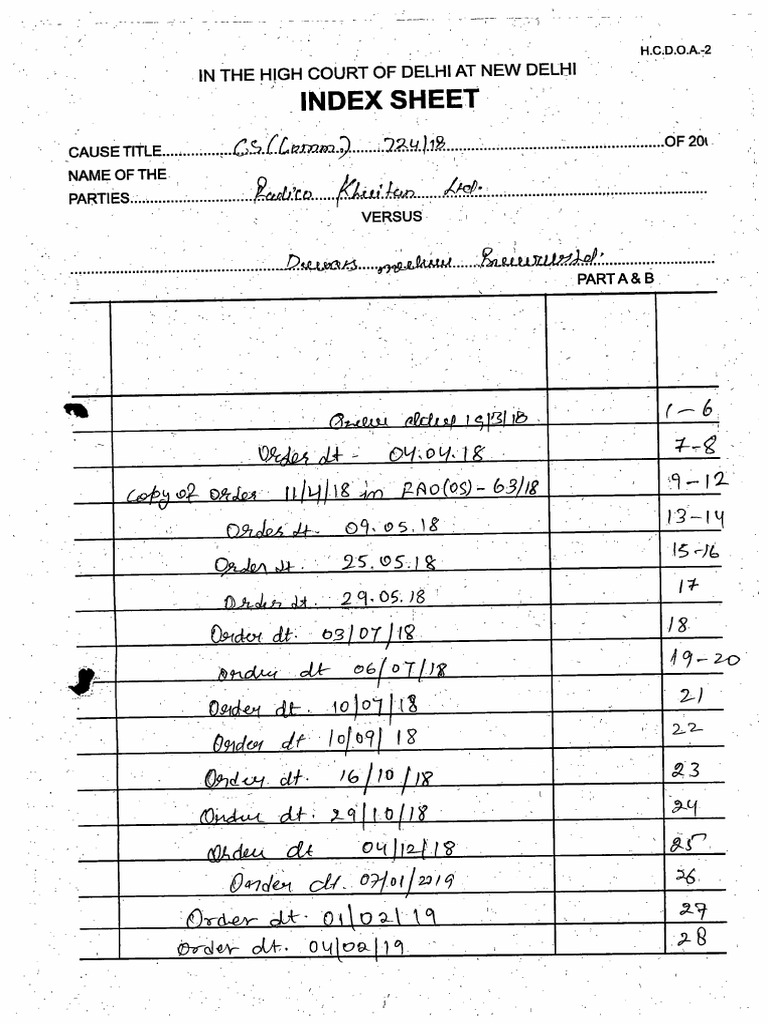 H.C.D.O.A.-2
IN THE HIGH COURT OF DELHI AT NEW DELHI
INDEX SHEET
CAUSE TITLE C.S.(Comm.) 724/18 OF 200
NAME OF THE
PARTIES Radico Khaitan Ltd.
VERSUS
Breweries Ltd.
PART A & B
Order dated 19/3/18 1-6
Order dt - 04.04.18 7-8
Copy of order 11/4/18 in FAO(OS)-63/18 9-12
Order dt. 09.05.18 13-14
Order dt. 25.05.18 15-16
Order dt. 29.05.18 17
Order dt. 03/07/18 18
Order dt 06/07/18 19-20
Order dt. 10/07/18 21
Order dt 10/09/18 22
Order dt. 16/10/18 23
Order dt. 29/10/18 24
Order dt 04/12/18 25
Order dt. 07/01/2019 26
Order dt. 01/02/19 27
Order dt. 04/02/19 28